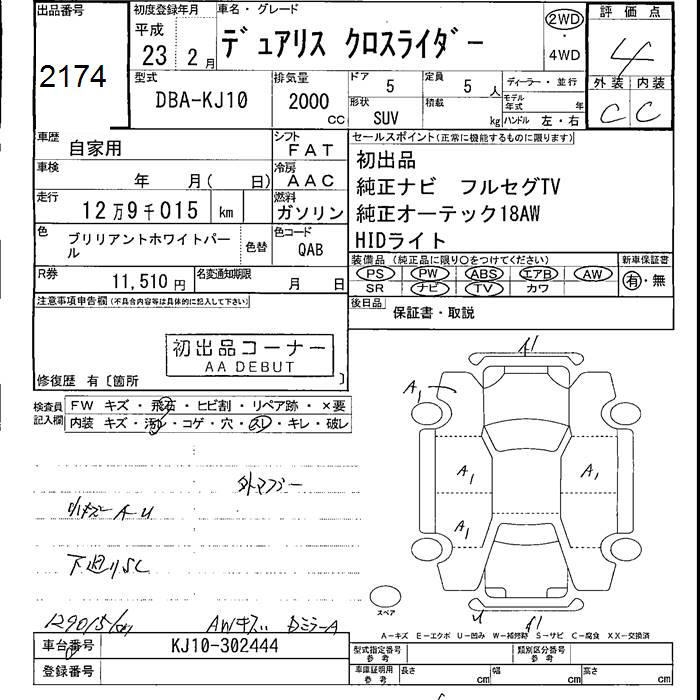 出品番号
2174
初度登録年月
平成
23 2月
車名・グレード
デュアリス クロスライダー
2WD
・
4WD
評価点
4
外装 内装
C C
型式
DBA-KJ10
排気量
2000
CC
ドア
5
定員
5 人
形状
SUV
積載
kg
ディーラー・並行
モデル年式 年
ハンドル 左・右
車歴
自家用
シフト
FAT
車検
年 月( 日)
冷房
AAC
走行
12万9千015 km
燃料
ガソリン
色
ブリリアントホワイトパール
色替
色コード
QAB
R券
11,510円
名変通知期限
月 日
セールスポイント(正常に機能するものに限ります)
初出品
純正ナビ フルセグTV
純正オーテック18AW
HIDライト
装備品(純正品に限り○をつけてください)
新車保証書
PS PW ABS エアB AW
SR ナビ TV カワ
有・無
後日品
保証書・取説
注意事項申告欄(不具合内容等は具体的に記入して下さい)
初出品コーナー
AA DEBUT
修復歴 有〔箇所 〕
検査員記入欄
FW キズ・飛石・ヒビ割・リペア跡・×要
内装 キズ・汚れ・コゲ・穴・スレ・キレ・破レ
外マフラー
小キズ A-U
下廻りSC
129015km
AWキズ
DミラーA
A1
A1
A1
A1
スペア
A-キズ E-エクボ U-凹み W-補修跡 S-サビ C-腐食 XX-交換済
車台番号
KJ10-302444
登録番号
型式指定番号
参考
類別区分番号
参考
車庫証明用
参考
長さ cm
幅 cm
高さ cm